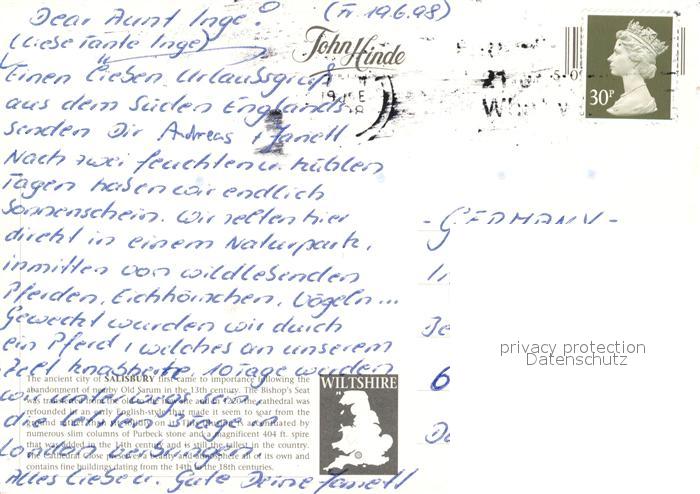 Dear Aunt Inge!
(Fr. 19.6.98)
(Liebe Tante Inge)
Einen lieben Urlaubsgruß
aus dem Süden Englands
senden Dir Andreas + Janett
Nach zwei feuchten u. kühlen
Tagen haben wir endlich
Sonnenschein. Wir zelten hier
direkt in einem Naturpark,
inmitten von wildlebenden
Pferden, Eichhörnchen, Vögeln...
Geweckt wurden wir durch
ein Pferd, welches an unserem
Zelt knabberte. 10 Tage werden
wir unterwegs sein,
die letzten Tage in
London verbringen.
Alles Liebe u. Gute Deine Janett
John Hinde
30P
- GERMANY -
privacy protection
Datenschutz
The ancient city of SALISBURY first came to importance following the
abandonment of nearby Old Sarum in the 13th century. The Bishop's Seat
was transferred from the old to the new and in 1220 the cathedral was
refounded in an early English-style that made it seem to soar from the
numerous slim columns of Purbeck stone and a magnificent 404 ft. spire
that was added in the 14th century and is still the tallest in the country.
The Cathedral Close preserves a beauty and atmosphere all of its own and
contains fine buildings dating from the 14th to the 18th centuries.
WILTSHIRE